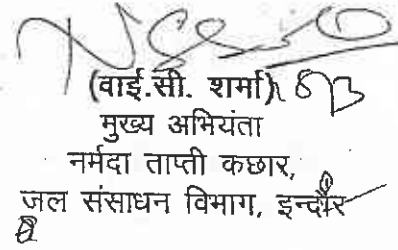 (वाई.सी. शर्मा)
मुख्य अभियंता
नर्मदा ताप्ती कछार,
जल संसाधन विभाग, इन्दौर